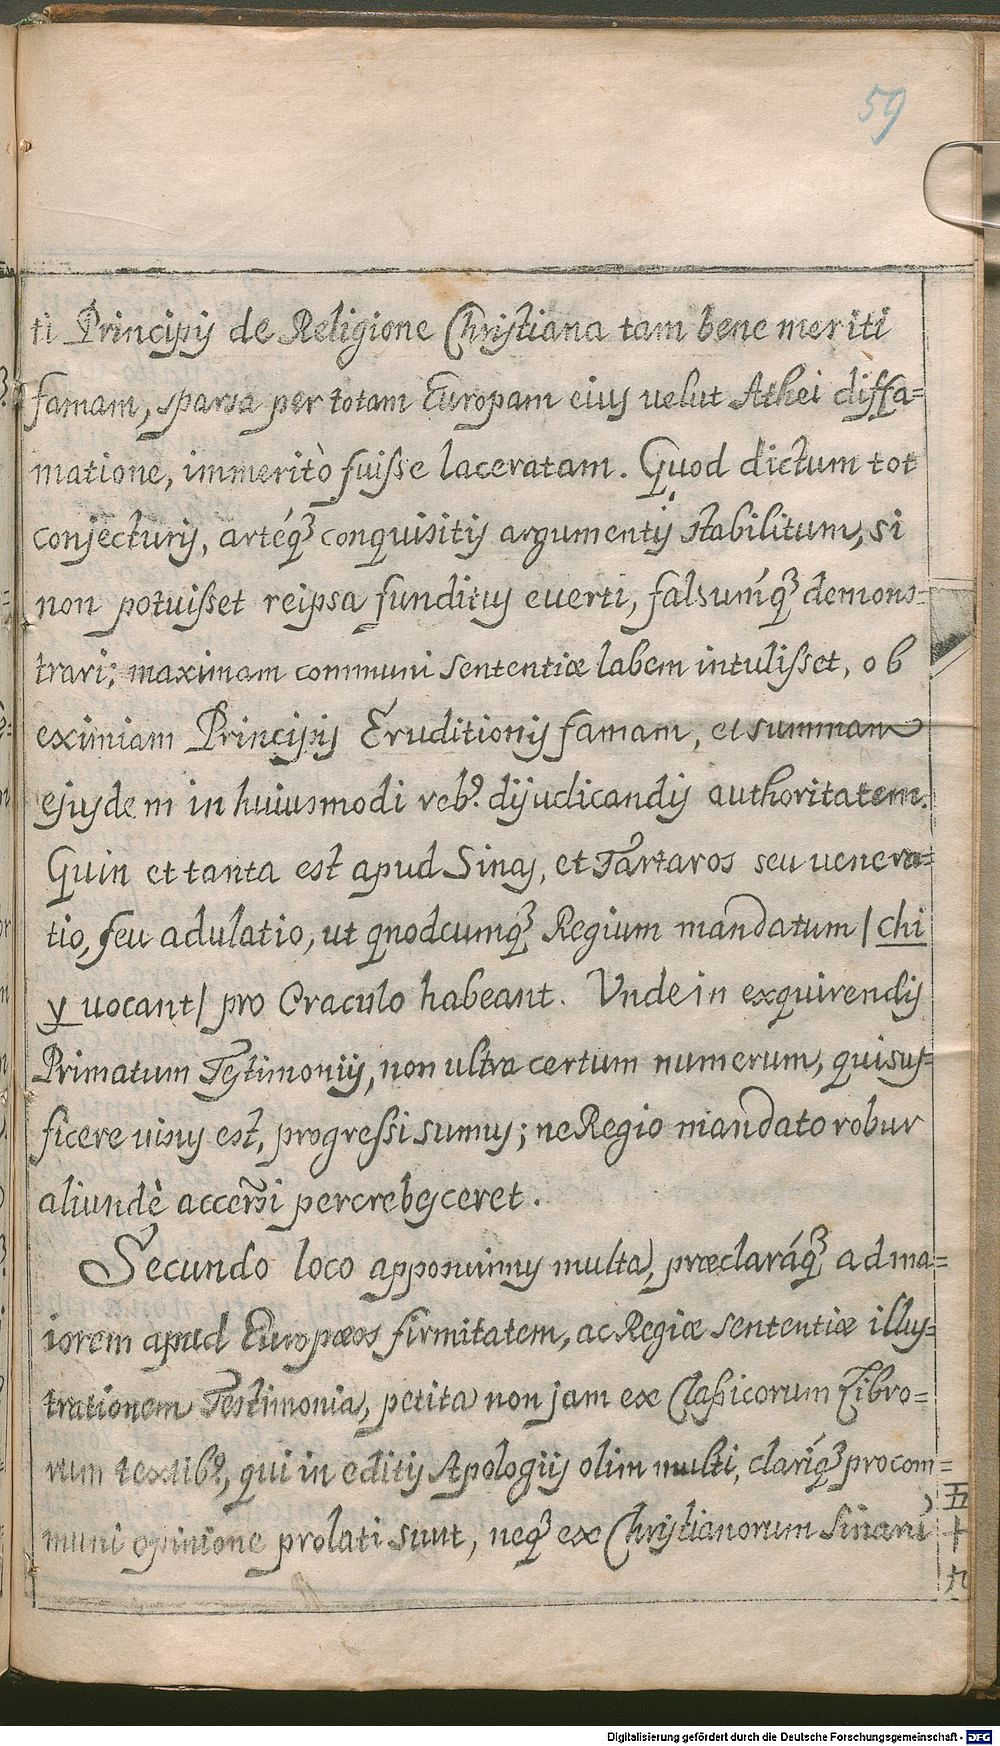 59
ti Principis de Religione Christiana tam bene meriti
famam, sparsa per totam Europam eius velut Athei diffa=
matione, immeritò fuisse laceratam. Quod dictum tot
conjecturis, artéq3 conquisitis argumentis stabilitum, si
non potuisset reipsa funditus everti, falsumq́3 demons=
trari; maximam communi sententiæ labem intulisset, ob
eximiam Principis Eruditionis famam, et summam
ejusdem in huiusmodi reb9. dijudicandis authoritatem.
Quin et tanta est apud Sinas, et Tartaros seu venera=
tio, seu adulatio, ut quodcumq3 Regium mandatum / chi
y uocant / pro Oraculo habeant. Vnde in exquirendis
Primatum Testimoniis, non ultra certum numerum, qui suf=
ficere uisus est, progressi sumus; ne Regio mandato robur
aliundè accersi percrebesceret.
Secundo loco apposuimus multa, præclaráq3 ad ma=
iorem apud Europæos firmitatem, ac Regiæ sententiæ illus=
trationem Testimonia, petita non jam ex Classicorum Libro=
rum textib9, qui in editis Apologiis olim multi, clariq́3 pro com=
muni opinione prolati sunt, neq3 ex Christianorum Sinarū
五十九
Digitalisierung gefördert durch die Deutsche Forschungsgemeinschaft - DFG